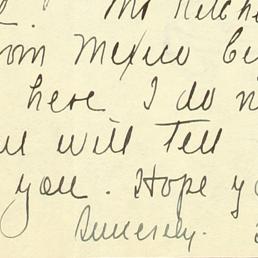 Mr Kitche
from Mexico Ci
here I do n
will Tell
you. Hope y
Sincerely.